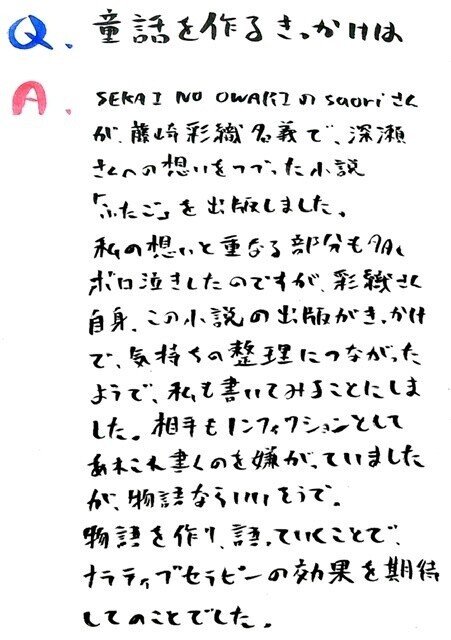 Q、童話を作るきっかけは
A、SEKAI NO OWARIのsaoriさん
が、藤崎彩織名義で、深瀬
さんへの想いをつづった小説
「ふたご」を出版しました。
私の想いと重なる部分も多く
ボロ泣きしたのですが、彩織さん
自身、この小説の出版がきっかけ
で、気持ちの整理につながった
ようで、私も書いてみることにしま
した。相手もノンフィクションとして
あれこれ書くのを嫌がっていました
が、物語ならいいそうで。
物語を作り、語っていくことで、
ナラティブセラピーの効果を期待
してのことでした。